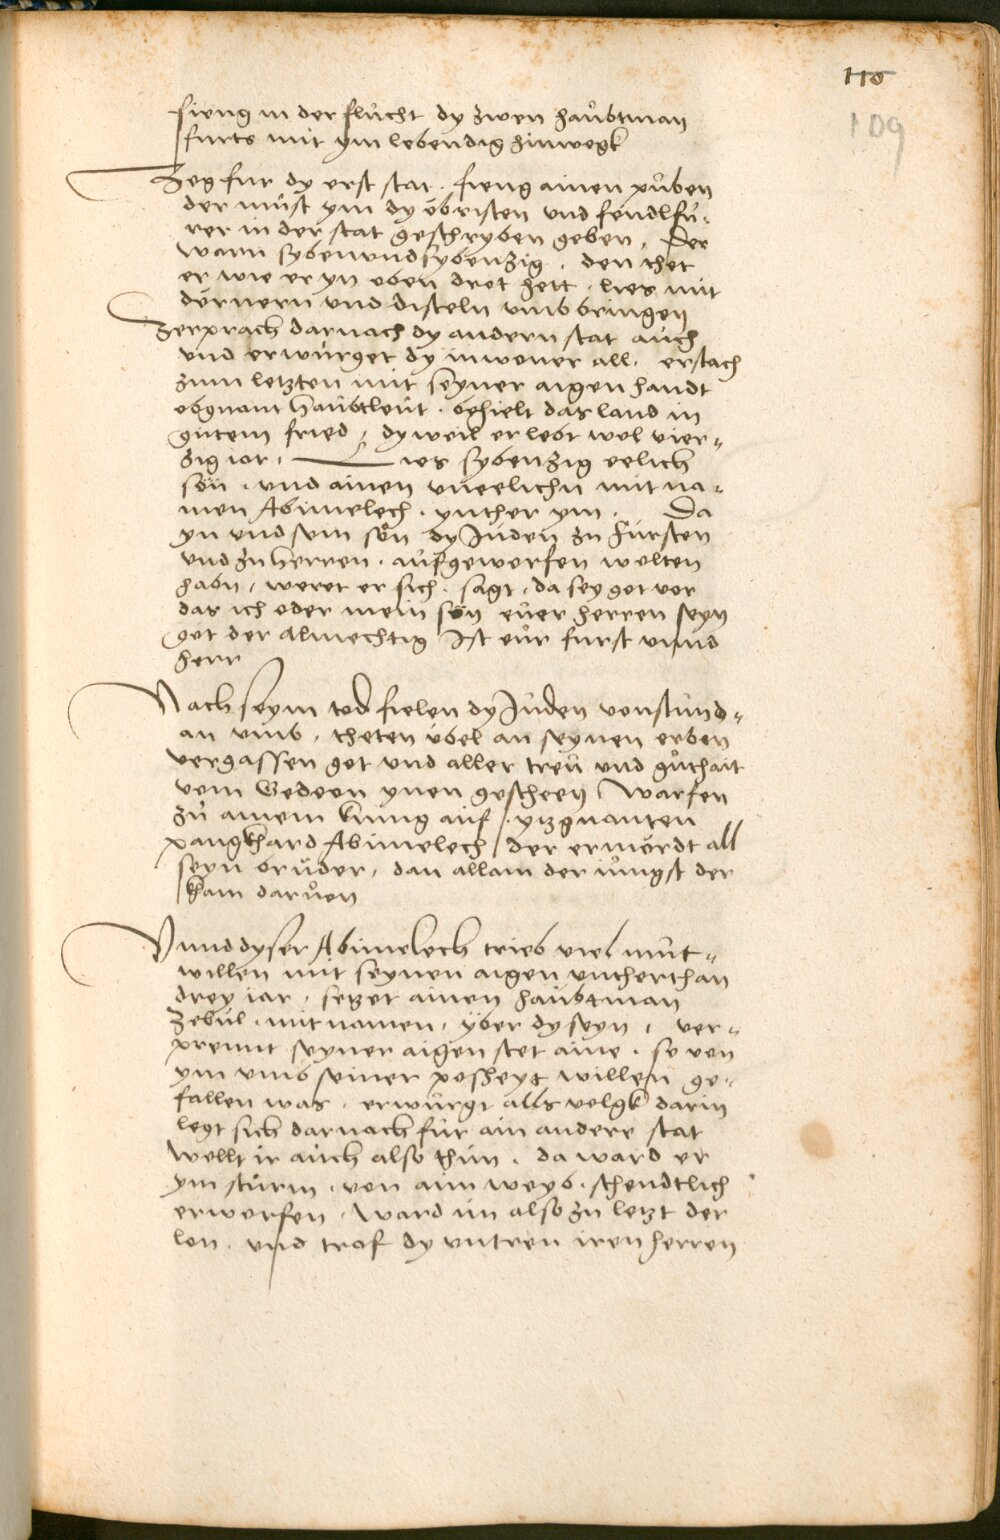 110
109
fieng in der flůcht dy zwen haůbtman
furts mit ym lebendig hinwegk
Zog fur dy erst stat. fieng ainen půben
der můst ym dy öbristen und fendlfů-
rer in der stat geschryben geben. Der
warn sybenundsybenzig. den thet
er wie er yn oben drot hett. lies mit
dörnern und disteln umbbringen
Zerprach darnach dy andern stat aůch
und erwůrget dy inwoner all. erstach
zum letzten mit seyner aigen handt
obgnant haůbtleůt. behielt das land in
gůtem fried, dyweil er lebt wol vier-
zig iar, lies sybenzig eelich
sön. und ainen uneelichn mit na-
men Abimelech. ynther ym. Da
yn und sein sön dy Juden zu fürsten
und zu herren. aufgeworfen wolten
habn, weret er sich. sagt, da sey got vor
das ich oder mein sön eůer herren seyn
got der almechtig Ist eůr furst unnd
herr
Nach seym tod fielen dy Juden vonstund-
an umb, theten übel an seynen erben
vergassen got und aller treů und gůthait
vom Gedeon ynen geschehen, Warfen
zů ainem kunig auf, ytzgnanten
pangkhard Abimelech, der ermördt all
seyn brüder, dan allain der iůngst der
kham darůon
Unnd dyser Abimelech trieb viel můt-
willen mit seynen aigen untherthan
drey iar, setzet ainen haůbtman
Zebul. mit namen, yber dy seyn, ver-
prennt seyner aigen stet aine. so von
ym umb seiner posheyt willen ge-
fallen was. erwůrgt alls volgk darin
legt sich darnach für ain andere stat
wollt ir aůch also thůn. da ward er
ym stůrm. von aim weyb. schendtlich
erworfen. Ward im also zu letzt der
lon. und traf dy untreu iren herren